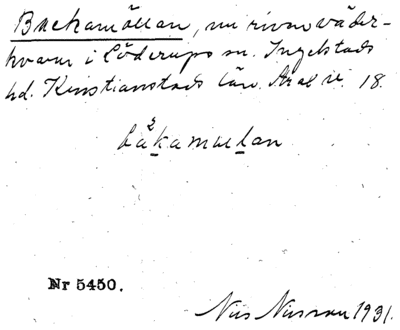 Backamöllan, nu riven väder-
kvarn i Löderups sn. Ingelstads
hd. Kristianstads län. Ax 18.
2
bakamölan
Nr 5450.
Nils Nilsson 1931.